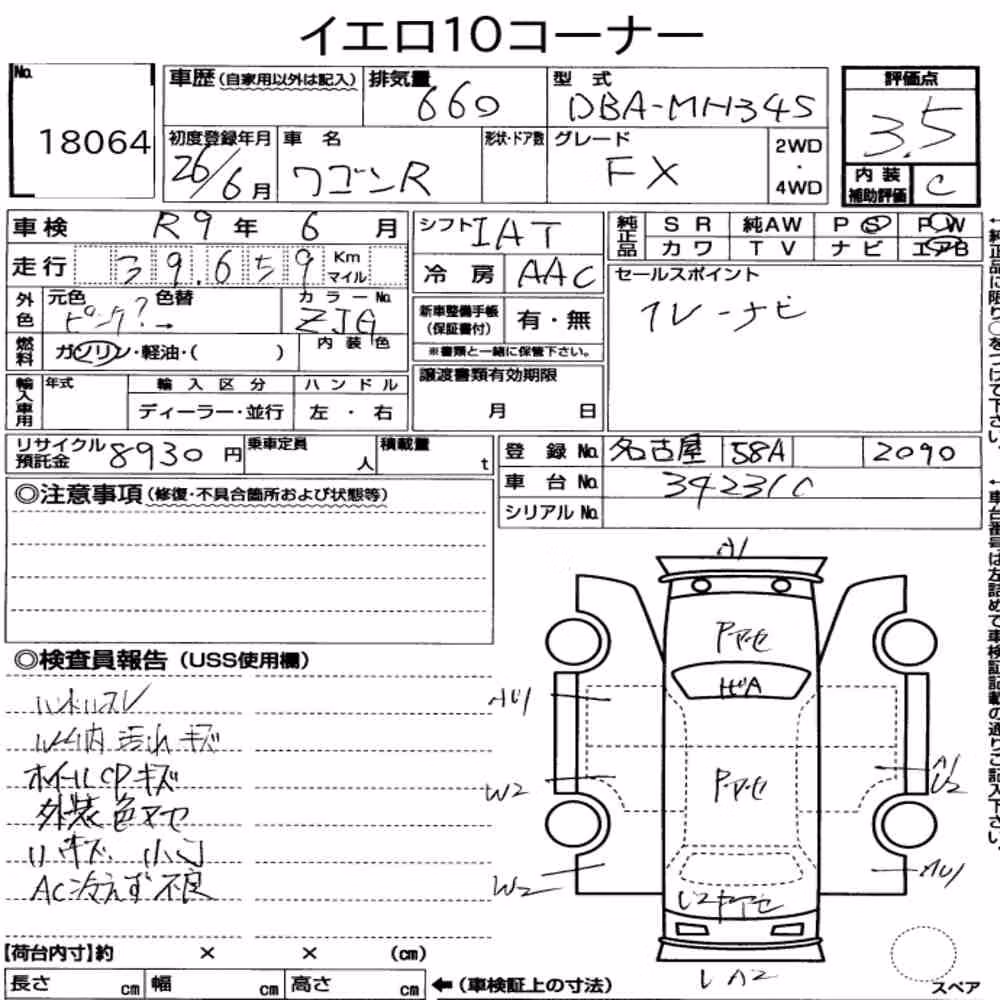 イエロ10コーナー
No. 18064
車歴(自家用以外は記入)
排気量 660
型式 DBA-MH34S
評価点 3.5
初度登録年月 26/6月
車名 ワゴンR
形状・ドア数
グレード FX
2WD・4WD
内装補助評価 C
車検 R9年 6月
シフト IAT
純正品 SR 純AW PS PW
カワ TV ナビ エアB
走行 39,659 Km マイル
冷房 AAC
セールスポイント
外色 元色 ピンク?→ 色替
カラーNo. ZJG
新車整備手帳(保証書付) 有・無
燃料 ガソリン・軽油・( )
内装色
※書類と一緒に保管下さい。
輸入車用 年式 輸入区分 ハンドル
ディーラー・並行 左・右
譲渡書類有効期限
月 日
←純正品に限り○をつけて下さい。
リサイクル預託金 8930円
乗車定員 人
積載量 t
登録No. 名古屋 58A 2090
車台No. 342310
シリアルNo.
←車台番号は左詰めで車検証記載の通りご記入下さい。
◎注意事項(修復・不具合箇所および状態等)
◎検査員報告(USS使用欄)
ハンドルスレ
ルーム内 汚れ キズ
ホイールCPキズ
外装 色アセ
小キズ 小凹
AC冷えず不良
A1
Pアセ
ヒビA
AU1
W2
A1
U2
Pアセ
W2
AU1
U2アセ
UA2
【荷台内寸】約 × × (cm)
長さ cm 幅 cm 高さ cm
←(車検証上の寸法)
スペア